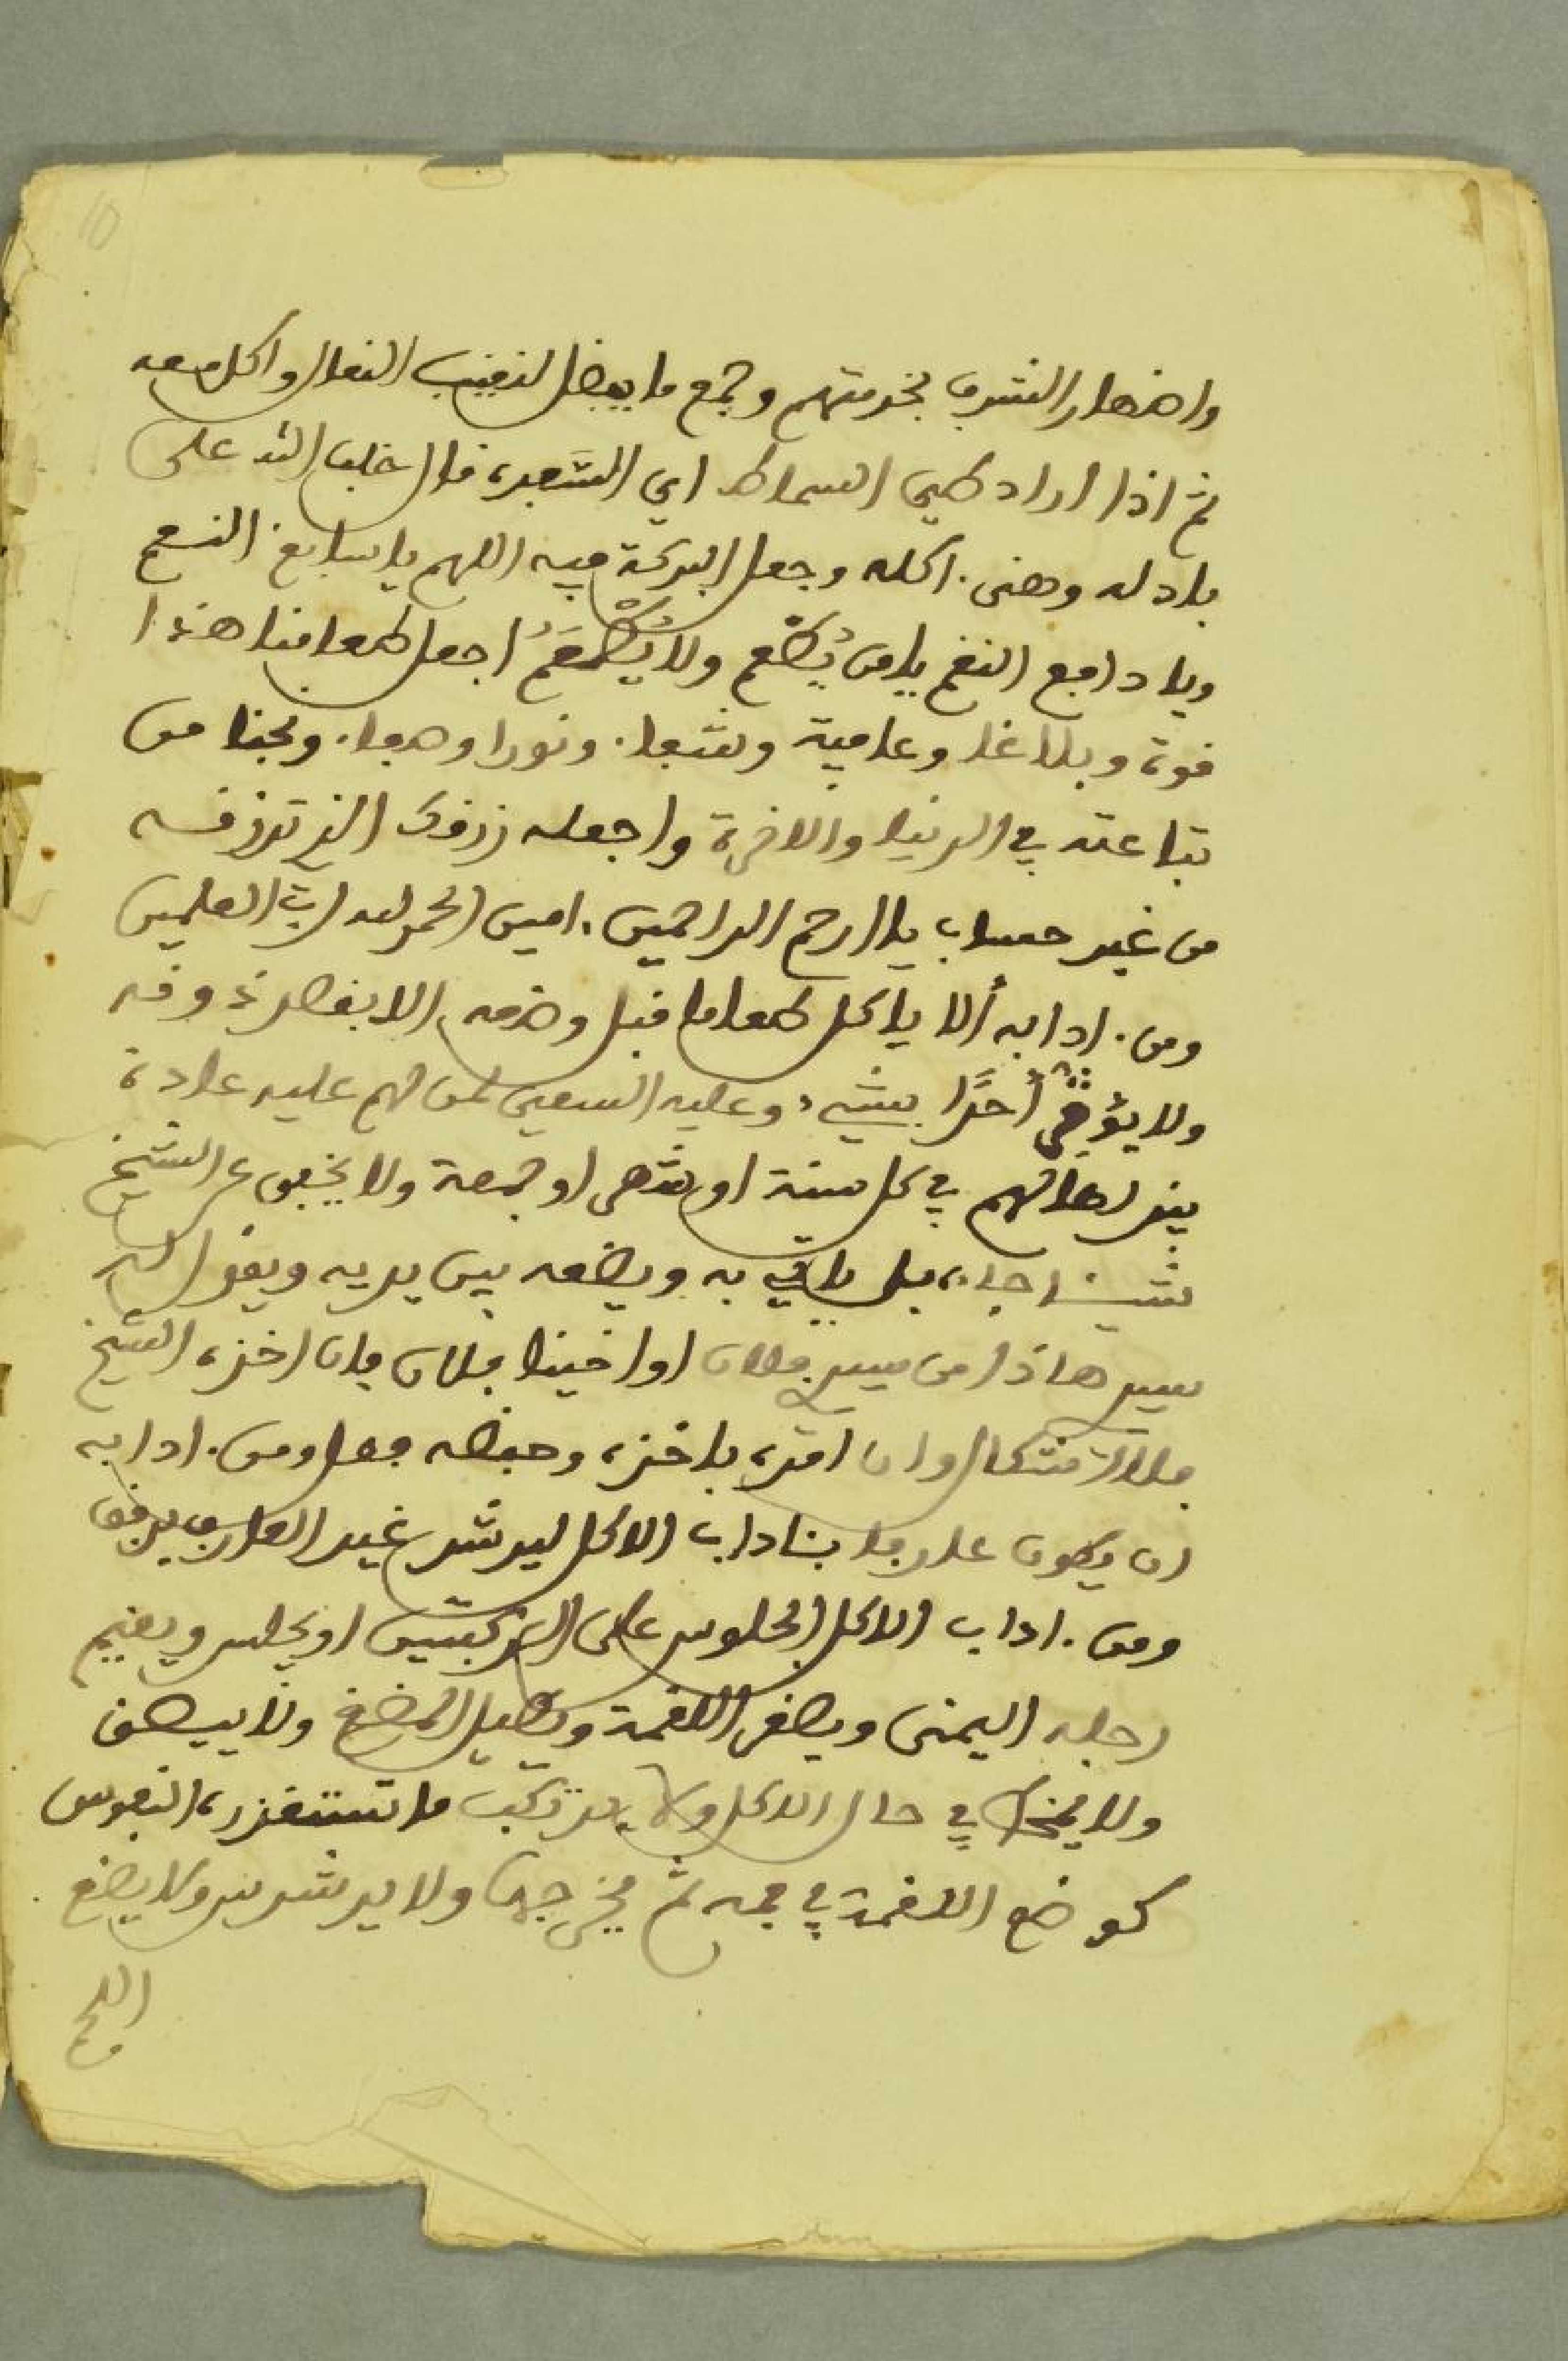 واظهار التشرف بخدمتهم وجمع ما يفضل لنقيب النعال واكل معه
ثم اذا اراد طي السماط اي السفرة قال اخلف الله على
باذله وهنى اكله وجعل البركة فيه اللهم يا سابغ النعم
ويا دافع النقم يا من يُطْعِم ولا يُطْعَمُ اجعل طعامنا هذا
قوة وبلاغا وعافية وشفا ونورا وهدا ونجنا من
تباعته في الدنيا والاخرة واجعله رزقك الذي ترزقه
من غير حساب يا ارحم الراحمين امين الحمد لله رب العلمين
ومن ادابه ألا ياكل طعاما قبل وضعه الا بقصد ذوقه
ولا يؤثر أحدًا بشيء وعليه السعي لمن لهم عليه عادة
في كل سنة او شهر او جمعة ولا يخفي عن الشيخ
شيئا جاء بل ياتي به ويضعه بين يديه ويقول له
سيدي هاذا من سيدي فلان او اخينا فلان فان اخذه الشيخ
فلا اشكال وان امره باخذه وحفظه فعل ومن ادابه
ان يكون عارفا باداب الاكل ليرشد غير العارف برفق
ومن اداب الاكل الجلوس على الركبتين او يجلس ويقيم
رجله اليمنى ويصغر اللقمة ويطيل المضغ ولا يبصق
ولا يمخط في حال الاكل ولا يرتكب ما تستقذره النفوس
كوضع اللقمة في فمه ثم يخرجها ولا يرشرش ولا يضع
اللحم